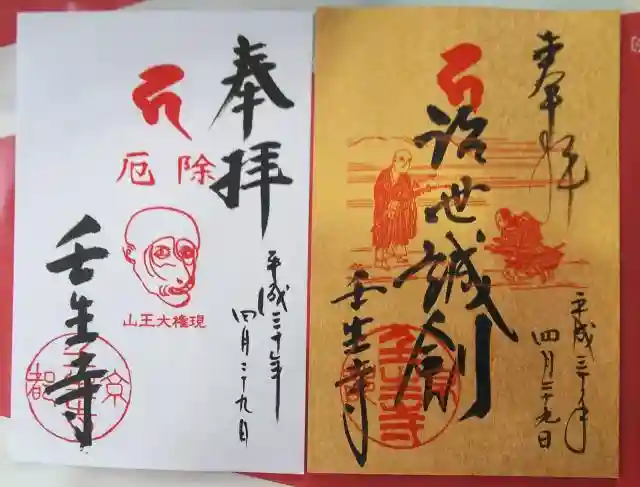 奉拝
平成三十年
四月二十九日
厄除
山王大権現
壬生寺
京都
壬生寺
奉拝
平成三十年
四月二十九日
治世誠劍
壬生寺